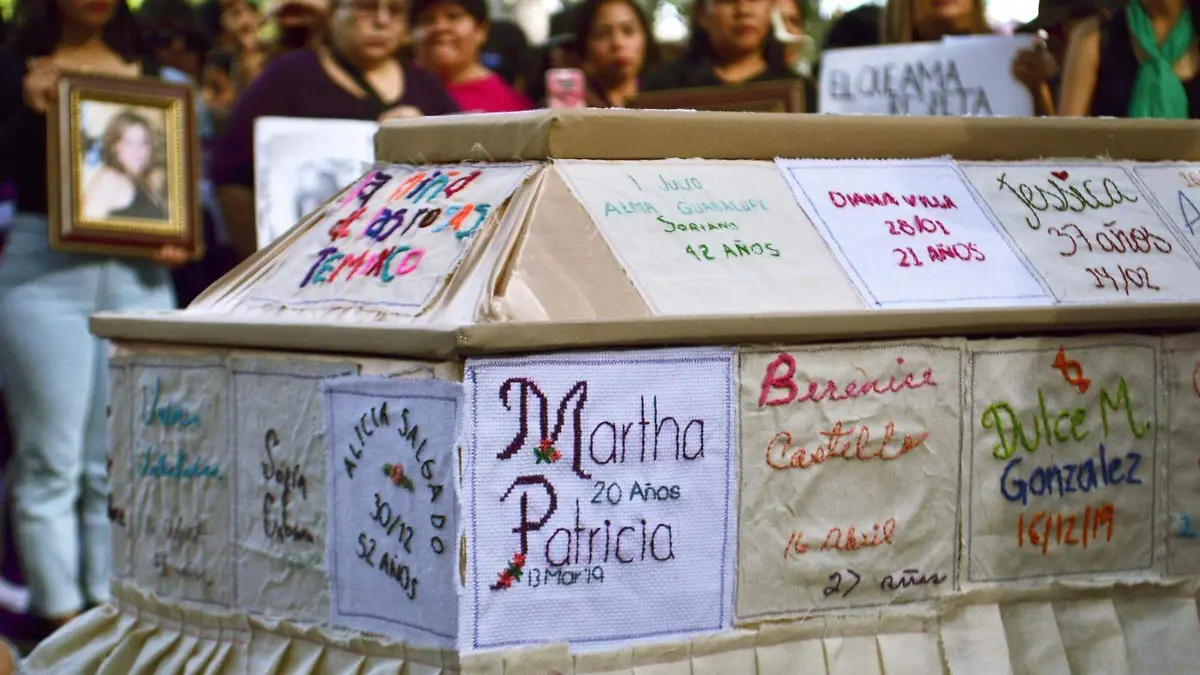 EL QUE AMA
RESPETA
la niña
de las rosas
TEMIXCO
1 JULIO
ALMA GUADALUPE
SORIANO
42 AÑOS
DIANA VILLA
28/01
21 AÑOS
Jessica
37 años
14/02
Sofía
ALICIA SALGADO
30/12
52 AÑOS
Martha
20 Años
Patricia
13 Mar '19
Berenice
Castello
16 Abril
27 años
Dulce M.
Gonzalez
16/12/19